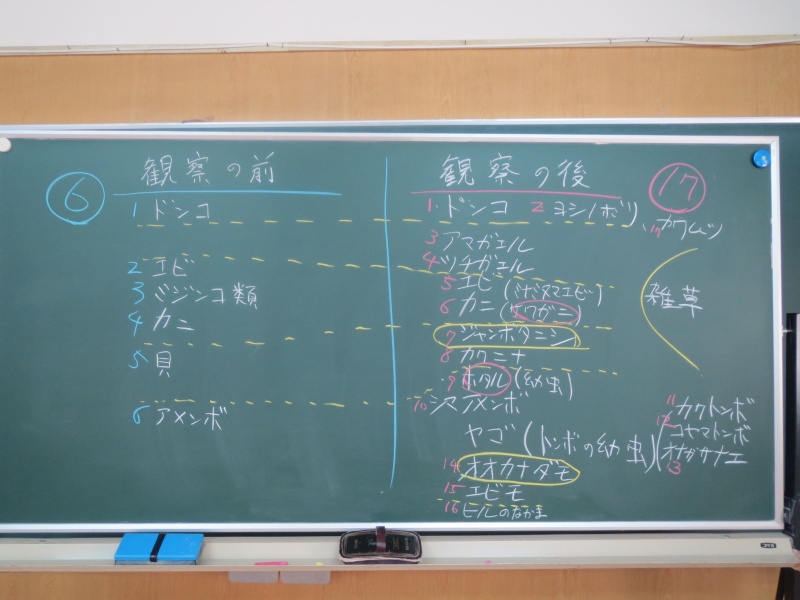 ⑥ 観察の前
1 ドンコ
2 エビ
3 ミジンコ類
4 カニ
5 貝
6 アメンボ
観察の後 ⑰
1. ドンコ 2 ヨシノボリ
17 カワムツ
3 アマガエル
4 ツチガエル
5 エビ (ミナミヌマエビ)
6 カニ (サワガニ)
7 ジャンボタニシ
8 カワニナ
9 ホタル (幼虫)
10 シマアメンボ
ヤゴ (トンボの幼虫)
11 カワトンボ
12 コヤマトンボ
オナガサナエ
13
14 オオカナダモ
15 エビモ
16 ヒルのなかま
雑草